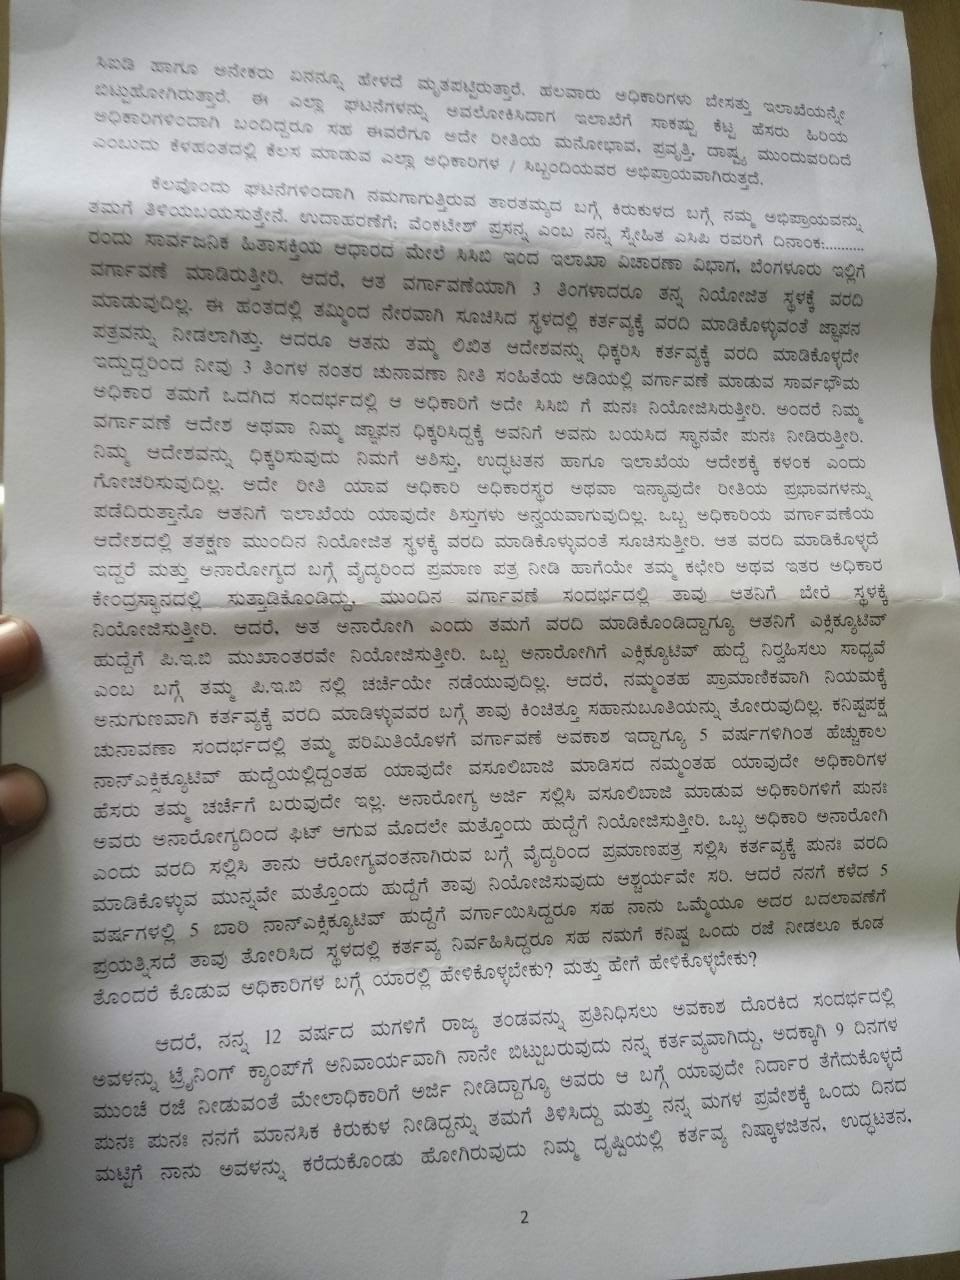 ಸಿಐಡಿ ಹಾಗೂ ಅನೇಕರು ಏನನ್ನೂ ಹೇಳದೆ ಮೃತಪಟ್ಟಿರುತ್ತಾರೆ. ಹಲವಾರು ಅಧಿಕಾರಿಗಳು ಬೇಸತ್ತು ಇಲಾಖೆಯನ್ನೇ
ಬಿಟ್ಟುಹೋಗಿರುತ್ತಾರೆ. ಈ ಎಲ್ಲಾ ಘಟನೆಗಳನ್ನು ಅವಲೋಕಿಸಿದಾಗ ಇಲಾಖೆಗೆ ಸಾಕಷ್ಟು ಕೆಟ್ಟ ಹೆಸರು ಹಿರಿಯ
ಅಧಿಕಾರಿಗಳಿಂದಾಗಿ ಬಂದಿದ್ದರೂ ಸಹ ಈವರೆಗೂ ಅದೇ ರೀತಿಯ ಮನೋಭಾವ, ಪ್ರವೃತ್ತಿ, ದಾಷ್ಟ್ಯ ಮುಂದುವರಿದಿದೆ
ಎಂಬುದು ಕೆಳಹಂತದಲ್ಲಿ ಕೆಲಸ ಮಾಡುವ ಎಲ್ಲಾ ಅಧಿಕಾರಿಗಳ / ಸಿಬ್ಬಂದಿಯವರ ಅಭಿಪ್ರಾಯವಾಗಿರುತ್ತದೆ.
ಕೆಲವೊಂದು ಘಟನೆಗಳಿಂದಾಗಿ ನಮಗಾಗುತ್ತಿರುವ ತಾರತಮ್ಯದ ಬಗ್ಗೆ ಕಿರುಕುಳದ ಬಗ್ಗೆ ನಮ್ಮ ಅಭಿಪ್ರಾಯವನ್ನು
ತಮಗೆ ತಿಳಿಯಬಯಸುತ್ತೇನೆ. ಉದಾಹರಣೆಗೆ; ವೆಂಕಟೇಶ್ ಪ್ರಸನ್ನ ಎಂಬ ನನ್ನ ಸ್ನೇಹಿತ ಎಸಿಪಿ ರವರಿಗೆ ದಿನಾಂಕ:..........
ರಂದು ಸಾರ್ವಜನಿಕ ಹಿತಾಸಕ್ತಿಯ ಆಧಾರದ ಮೇಲೆ ಸಿಸಿಬಿ ಇಂದ ಇಲಾಖಾ ವಿಚಾರಣಾ ವಿಭಾಗ, ಬೆಂಗಳೂರು ಇಲ್ಲಿಗೆ
ವರ್ಗಾವಣೆ ಮಾಡಿರುತ್ತೀರಿ. ಆದರೆ, ಆತ ವರ್ಗಾವಣೆಯಾಗಿ 3 ತಿಂಗಳಾದರೂ ತನ್ನ ನಿಯೋಜಿತ ಸ್ಥಳಕ್ಕೆ ವರದಿ
ಮಾಡುವುದಿಲ್ಲ. ಈ ಹಂತದಲ್ಲಿ ತಮ್ಮಿಂದ ನೇರವಾಗಿ ಸೂಚಿಸಿದ ಸ್ಥಳದಲ್ಲಿ ಕರ್ತವ್ಯಕ್ಕೆ ವರದಿ ಮಾಡಿಕೊಳ್ಳುವಂತೆ ಜ್ಞಾಪನ
ಪತ್ರವನ್ನು ನೀಡಲಾಗಿತ್ತು. ಆದರೂ ಆತನು ತಮ್ಮ ಲಿಖಿತ ಆದೇಶವನ್ನು ಧಿಕ್ಕರಿಸಿ ಕರ್ತವ್ಯಕ್ಕೆ ವರದಿ ಮಾಡಿಕೊಳ್ಳದೇ
ಇದ್ದುದ್ದರಿಂದ ನೀವು 3 ತಿಂಗಳ ನಂತರ ಚುನಾವಣಾ ನೀತಿ ಸಂಹಿತೆಯ ಅಡಿಯಲ್ಲಿ ವರ್ಗಾವಣೆ ಮಾಡುವ ಸಾರ್ವಭೌಮ
ಅಧಿಕಾರ ತಮಗೆ ಒದಗಿದ ಸಂದರ್ಭದಲ್ಲಿ ಆ ಅಧಿಕಾರಿಗೆ ಅದೇ ಸಿಸಿಬಿ ಗೆ ಪುನಃ ನಿಯೋಜಿಸಿರುತ್ತೀರಿ. ಅಂದರೆ ನಿಮ್ಮ
ವರ್ಗಾವಣೆ ಆದೇಶ ಅಥವಾ ನಿಮ್ಮ ಜ್ಞಾಪನ ಧಿಕ್ಕರಿಸಿದ್ದಕ್ಕೆ ಅವನಿಗೆ ಅವನು ಬಯಸಿದ ಸ್ಥಾನವೇ ಪುನಃ ನೀಡಿರುತ್ತೀರಿ.
ನಿಮ್ಮ ಆದೇಶವನ್ನು ಧಿಕ್ಕರಿಸುವುದು ನಿಮಗೆ ಅಶಿಸ್ತು, ಉದ್ಧಟತನ ಹಾಗೂ ಇಲಾಖೆಯ ಆದೇಶಕ್ಕೆ ಕಳಂಕ ಎಂದು
ಗೋಚರಿಸುವುದಿಲ್ಲ. ಅದೇ ರೀತಿ ಯಾವ ಅಧಿಕಾರಿ ಅಧಿಕಾರಸ್ಥರ ಅಥವಾ ಇನ್ಯಾವುದೇ ರೀತಿಯ ಪ್ರಭಾವಗಳನ್ನು
ಪಡೆದಿರುತ್ತಾನೊ ಆತನಿಗೆ ಇಲಾಖೆಯ ಯಾವುದೇ ಶಿಸ್ತುಗಳು ಅನ್ವಯವಾಗುವುದಿಲ್ಲ. ಒಬ್ಬ ಅಧಿಕಾರಿಯ ವರ್ಗಾವಣೆಯ
ಆದೇಶದಲ್ಲಿ ತತಕ್ಷಣ ಮುಂದಿನ ನಿಯೋಜಿತ ಸ್ಥಳಕ್ಕೆ ವರದಿ ಮಾಡಿಕೊಳ್ಳುವಂತೆ ಸೂಚಿಸುತ್ತೀರಿ. ಆತ ವರದಿ ಮಾಡಿಕೊಳ್ಳದೆ
ಇದ್ದರೆ ಮತ್ತು ಅನಾರೋಗ್ಯದ ಬಗ್ಗೆ ವೈದ್ಯರಿಂದ ಪ್ರಮಾಣ ಪತ್ರ ನೀಡಿ ಹಾಗೆಯೇ ತಮ್ಮ ಕಛೇರಿ ಅಥವ ಇತರ ಅಧಿಕಾರ
ಕೇಂದ್ರಸ್ಥಾನದಲ್ಲಿ ಸುತ್ತಾಡಿಕೊಂಡಿದ್ದು, ಮುಂದಿನ ವರ್ಗಾವಣೆ ಸಂದರ್ಭದಲ್ಲಿ ತಾವು ಆತನಿಗೆ ಬೇರೆ ಸ್ಥಳಕ್ಕೆ
ನಿಯೋಜಿಸುತ್ತೀರಿ. ಆದರೆ, ಅತ ಅನಾರೋಗಿ ಎಂದು ತಮಗೆ ವರದಿ ಮಾಡಿಕೊಂಡಿದ್ದಾಗ್ಯೂ ಆತನಿಗೆ ಎಕ್ಸಿಕ್ಯೂಟಿವ್
ಹುದ್ದೆಗೆ ಪಿ.ಇ.ಬಿ ಮುಖಾಂತರವೇ ನಿಯೋಜಿಸುತ್ತೀರಿ. ಒಬ್ಬ ಅನಾರೋಗಿಗೆ ಎಕ್ಸಿಕ್ಯೂಟಿವ್ ಹುದ್ದೆ ನಿರ್ವಹಿಸಲು ಸಾಧ್ಯವೆ
ಎಂಬ ಬಗ್ಗೆ ತಮ್ಮ ಪಿ.ಇ.ಬಿ ನಲ್ಲಿ ಚರ್ಚೆಯೇ ನಡೆಯುವುದಿಲ್ಲ. ಆದರೆ, ನಮ್ಮಂತಹ ಪ್ರಾಮಾಣಿಕವಾಗಿ ನಿಯಮಕ್ಕೆ
ಅನುಗುಣವಾಗಿ ಕರ್ತವ್ಯಕ್ಕೆ ವರದಿ ಮಾಡಿಳ್ಳುವವರ ಬಗ್ಗೆ ತಾವು ಕಿಂಚಿತ್ತೂ ಸಹಾನುಬೂತಿಯನ್ನು ತೋರುವುದಿಲ್ಲ. ಕನಿಷ್ಟಪಕ್ಷ
ಚುನಾವಣಾ ಸಂದರ್ಭದಲ್ಲಿ ತಮ್ಮ ಪರಿಮಿತಿಯೊಳಗೆ ವರ್ಗಾವಣೆ ಅವಕಾಶ ಇದ್ದಾಗ್ಯೂ 5 ವರ್ಷಗಳಿಗಿಂತ ಹೆಚ್ಚುಕಾಲ
ನಾನ್‌ಎಕ್ಸಿಕ್ಯೂಟಿವ್ ಹುದ್ದೆಯಲ್ಲಿದ್ದಂತಹ ಯಾವುದೇ ವಸೂಲಿಬಾಜಿ ಮಾಡಿಸದ ನಮ್ಮಂತಹ ಯಾವುದೇ ಅಧಿಕಾರಿಗಳ
ಹೆಸರು ತಮ್ಮ ಚರ್ಚೆಗೆ ಬರುವುದೇ ಇಲ್ಲ. ಅನಾರೋಗ್ಯ ಅರ್ಜಿ ಸಲ್ಲಿಸಿ ವಸೂಲಿಬಾಜಿ ಮಾಡುವ ಅಧಿಕಾರಿಗಳಿಗೆ ಪುನಃ
ಅವರು ಅನಾರೋಗ್ಯದಿಂದ ಫಿಟ್ ಆಗುವ ಮೊದಲೇ ಮತ್ತೊಂದು ಹುದ್ದೆಗೆ ನಿಯೋಜಿಸುತ್ತೀರಿ. ಒಬ್ಬ ಅಧಿಕಾರಿ ಅನಾರೋಗಿ
ಎಂದು ವರದಿ ಸಲ್ಲಿಸಿ ತಾನು ಆರೋಗ್ಯವಂತನಾಗಿರುವ ಬಗ್ಗೆ ವೈದ್ಯರಿಂದ ಪ್ರಮಾಣಪತ್ರ ಸಲ್ಲಿಸಿ ಕರ್ತವ್ಯಕ್ಕೆ ಪುನಃ ವರದಿ
ಮಾಡಿಕೊಳ್ಳುವ ಮುನ್ನವೇ ಮತ್ತೊಂದು ಹುದ್ದೆಗೆ ತಾವು ನಿಯೋಜಿಸುವುದು ಆಶ್ಚರ್ಯವೇ ಸರಿ. ಆದರೆ ನನಗೆ ಕಳೆದ 5
ವರ್ಷಗಳಲ್ಲಿ 5 ಬಾರಿ ನಾನ್‌ಎಕ್ಸಿಕ್ಯೂಟಿವ್ ಹುದ್ದೆಗೆ ವರ್ಗಾಯಿಸಿದ್ದರೂ ಸಹ ನಾನು ಒಮ್ಮೆಯೂ ಅದರ ಬದಲಾವಣೆಗೆ
ಪ್ರಯತ್ನಿಸದೆ ತಾವು ತೋರಿಸಿದ ಸ್ಥಳದಲ್ಲಿ ಕರ್ತವ್ಯ ನಿರ್ವಹಿಸಿದ್ದರೂ ಸಹ ನಮಗೆ ಕನಿಷ್ಟ ಒಂದು ರಜೆ ನೀಡಲೂ ಕೂಡ
ತೊಂದರೆ ಕೊಡುವ ಅಧಿಕಾರಿಗಳ ಬಗ್ಗೆ ಯಾರಲ್ಲಿ ಹೇಳಿಕೊಳ್ಳಬೇಕು? ಮತ್ತು ಹೇಗೆ ಹೇಳಿಕೊಳ್ಳಬೇಕು?
ಆದರೆ, ನನ್ನ 12 ವರ್ಷದ ಮಗಳಿಗೆ ರಾಜ್ಯ ತಂಡವನ್ನು ಪ್ರತಿನಿಧಿಸಲು ಅವಕಾಶ ದೊರಕಿದ ಸಂದರ್ಭದಲ್ಲಿ
ಅವಳನ್ನು ಟ್ರೈನಿಂಗ್ ಕ್ಯಾಂಪ್‌ಗೆ ಅನಿವಾರ್ಯವಾಗಿ ನಾನೇ ಬಿಟ್ಟುಬರುವುದು ನನ್ನ ಕರ್ತವ್ಯವಾಗಿದ್ದು, ಅದಕ್ಕಾಗಿ 9 ದಿನಗಳ
ಮುಂಚೆ ರಜೆ ನೀಡುವಂತೆ ಮೇಲಾಧಿಕಾರಿಗೆ ಅರ್ಜಿ ನೀಡಿದ್ದಾಗ್ಯೂ ಅವರು ಆ ಬಗ್ಗೆ ಯಾವುದೇ ನಿರ್ದಾರ ತೆಗೆದುಕೊಳ್ಳದೆ
ಪುನಃ ಪುನಃ ನನಗೆ ಮಾನಸಿಕ ಕಿರುಕುಳ ನೀಡಿದ್ದನ್ನು ತಮಗೆ ತಿಳಿಸಿದ್ದು ಮತ್ತು ನನ್ನ ಮಗಳ ಪ್ರವೇಶಕ್ಕೆ ಒಂದು ದಿನದ
ಮಟ್ಟಿಗೆ ನಾನು ಅವಳನ್ನು ಕರೆದುಕೊಂಡು ಹೋಗಿರುವುದು ನಿಮ್ಮ ದೃಷ್ಟಿಯಲ್ಲಿ ಕರ್ತವ್ಯ ನಿಷ್ಕಾಳಜಿತನ, ಉದ್ಧಟತನ,
2